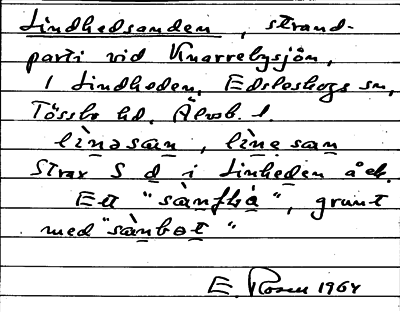 Lindhedsanden, strand-
parti vid Knarrebysjön,
1 Lindheden, Edsleskogs sn,
Tössbo hd, Älvsb. l.
lìnəsan, lìne san
Strax S d i Linheden å ek.
Ett "sànflɔ́", grunt
med "sànbɔt"
E. Rosen 1964